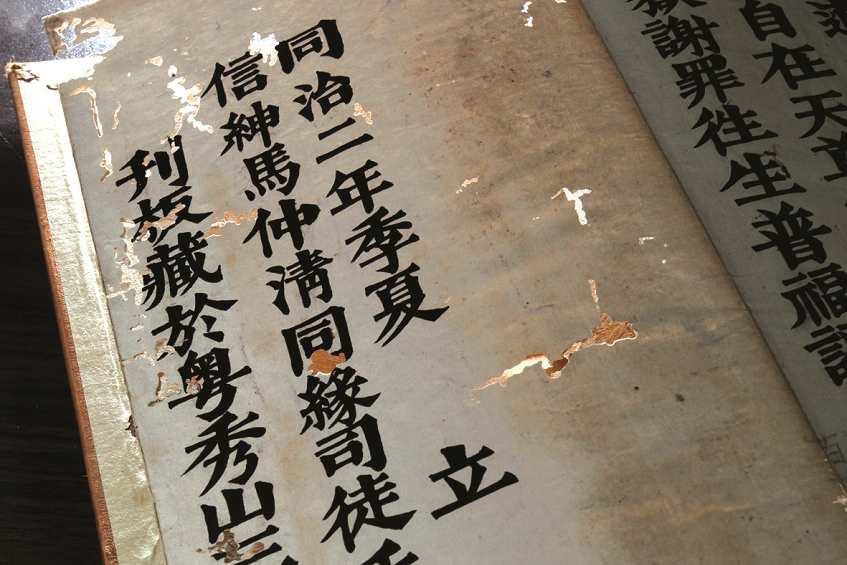 自在天
謝罪往生普福
同治二年季夏立
信紳馬仲清同緣司徒
刊板藏於粵秀山